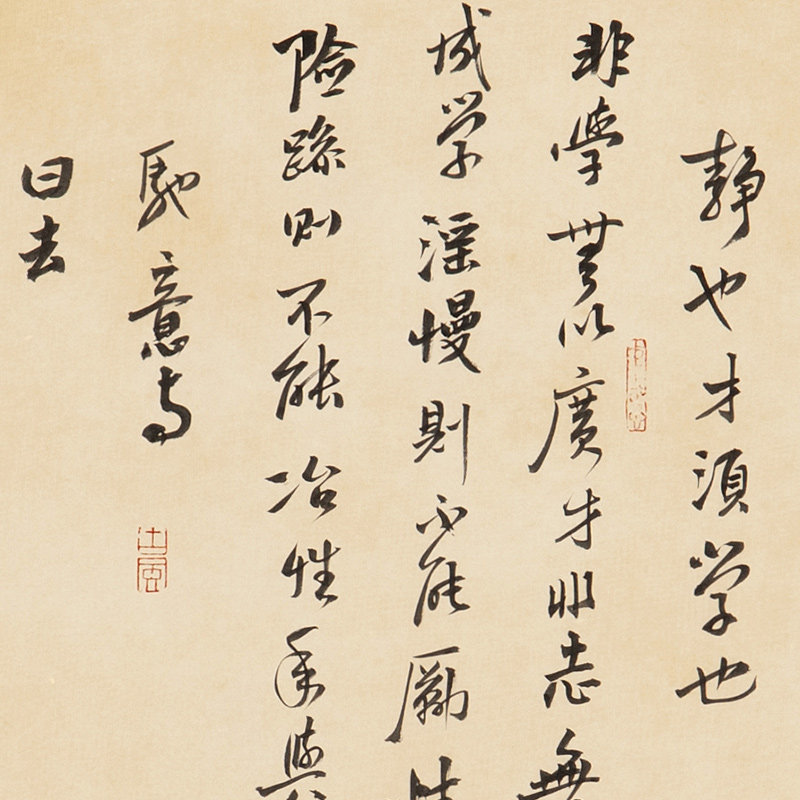 靜也才須学也
非學無以廣才非志無
城学淫慢則不能勵
險躁則不能冶性年與
馳意与
日去